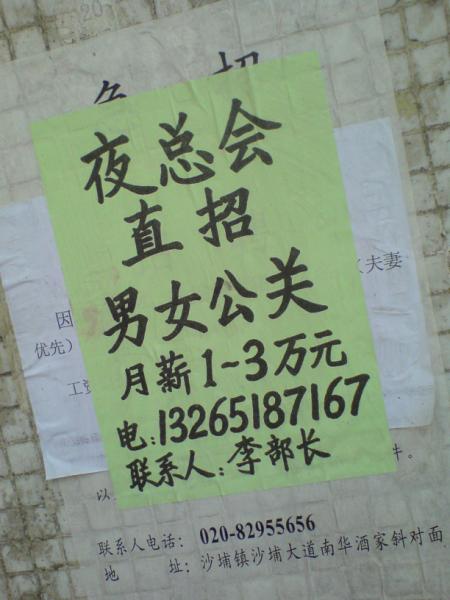 急 招
夜总会
直招
男女公关
月薪1~3万元
电:13265187167
联系人:李部长
夫妻
因
优先)
工资
以
件。
联系人电话: 020-82955656
地 址: 沙埔镇沙埔大道南华酒家斜对面